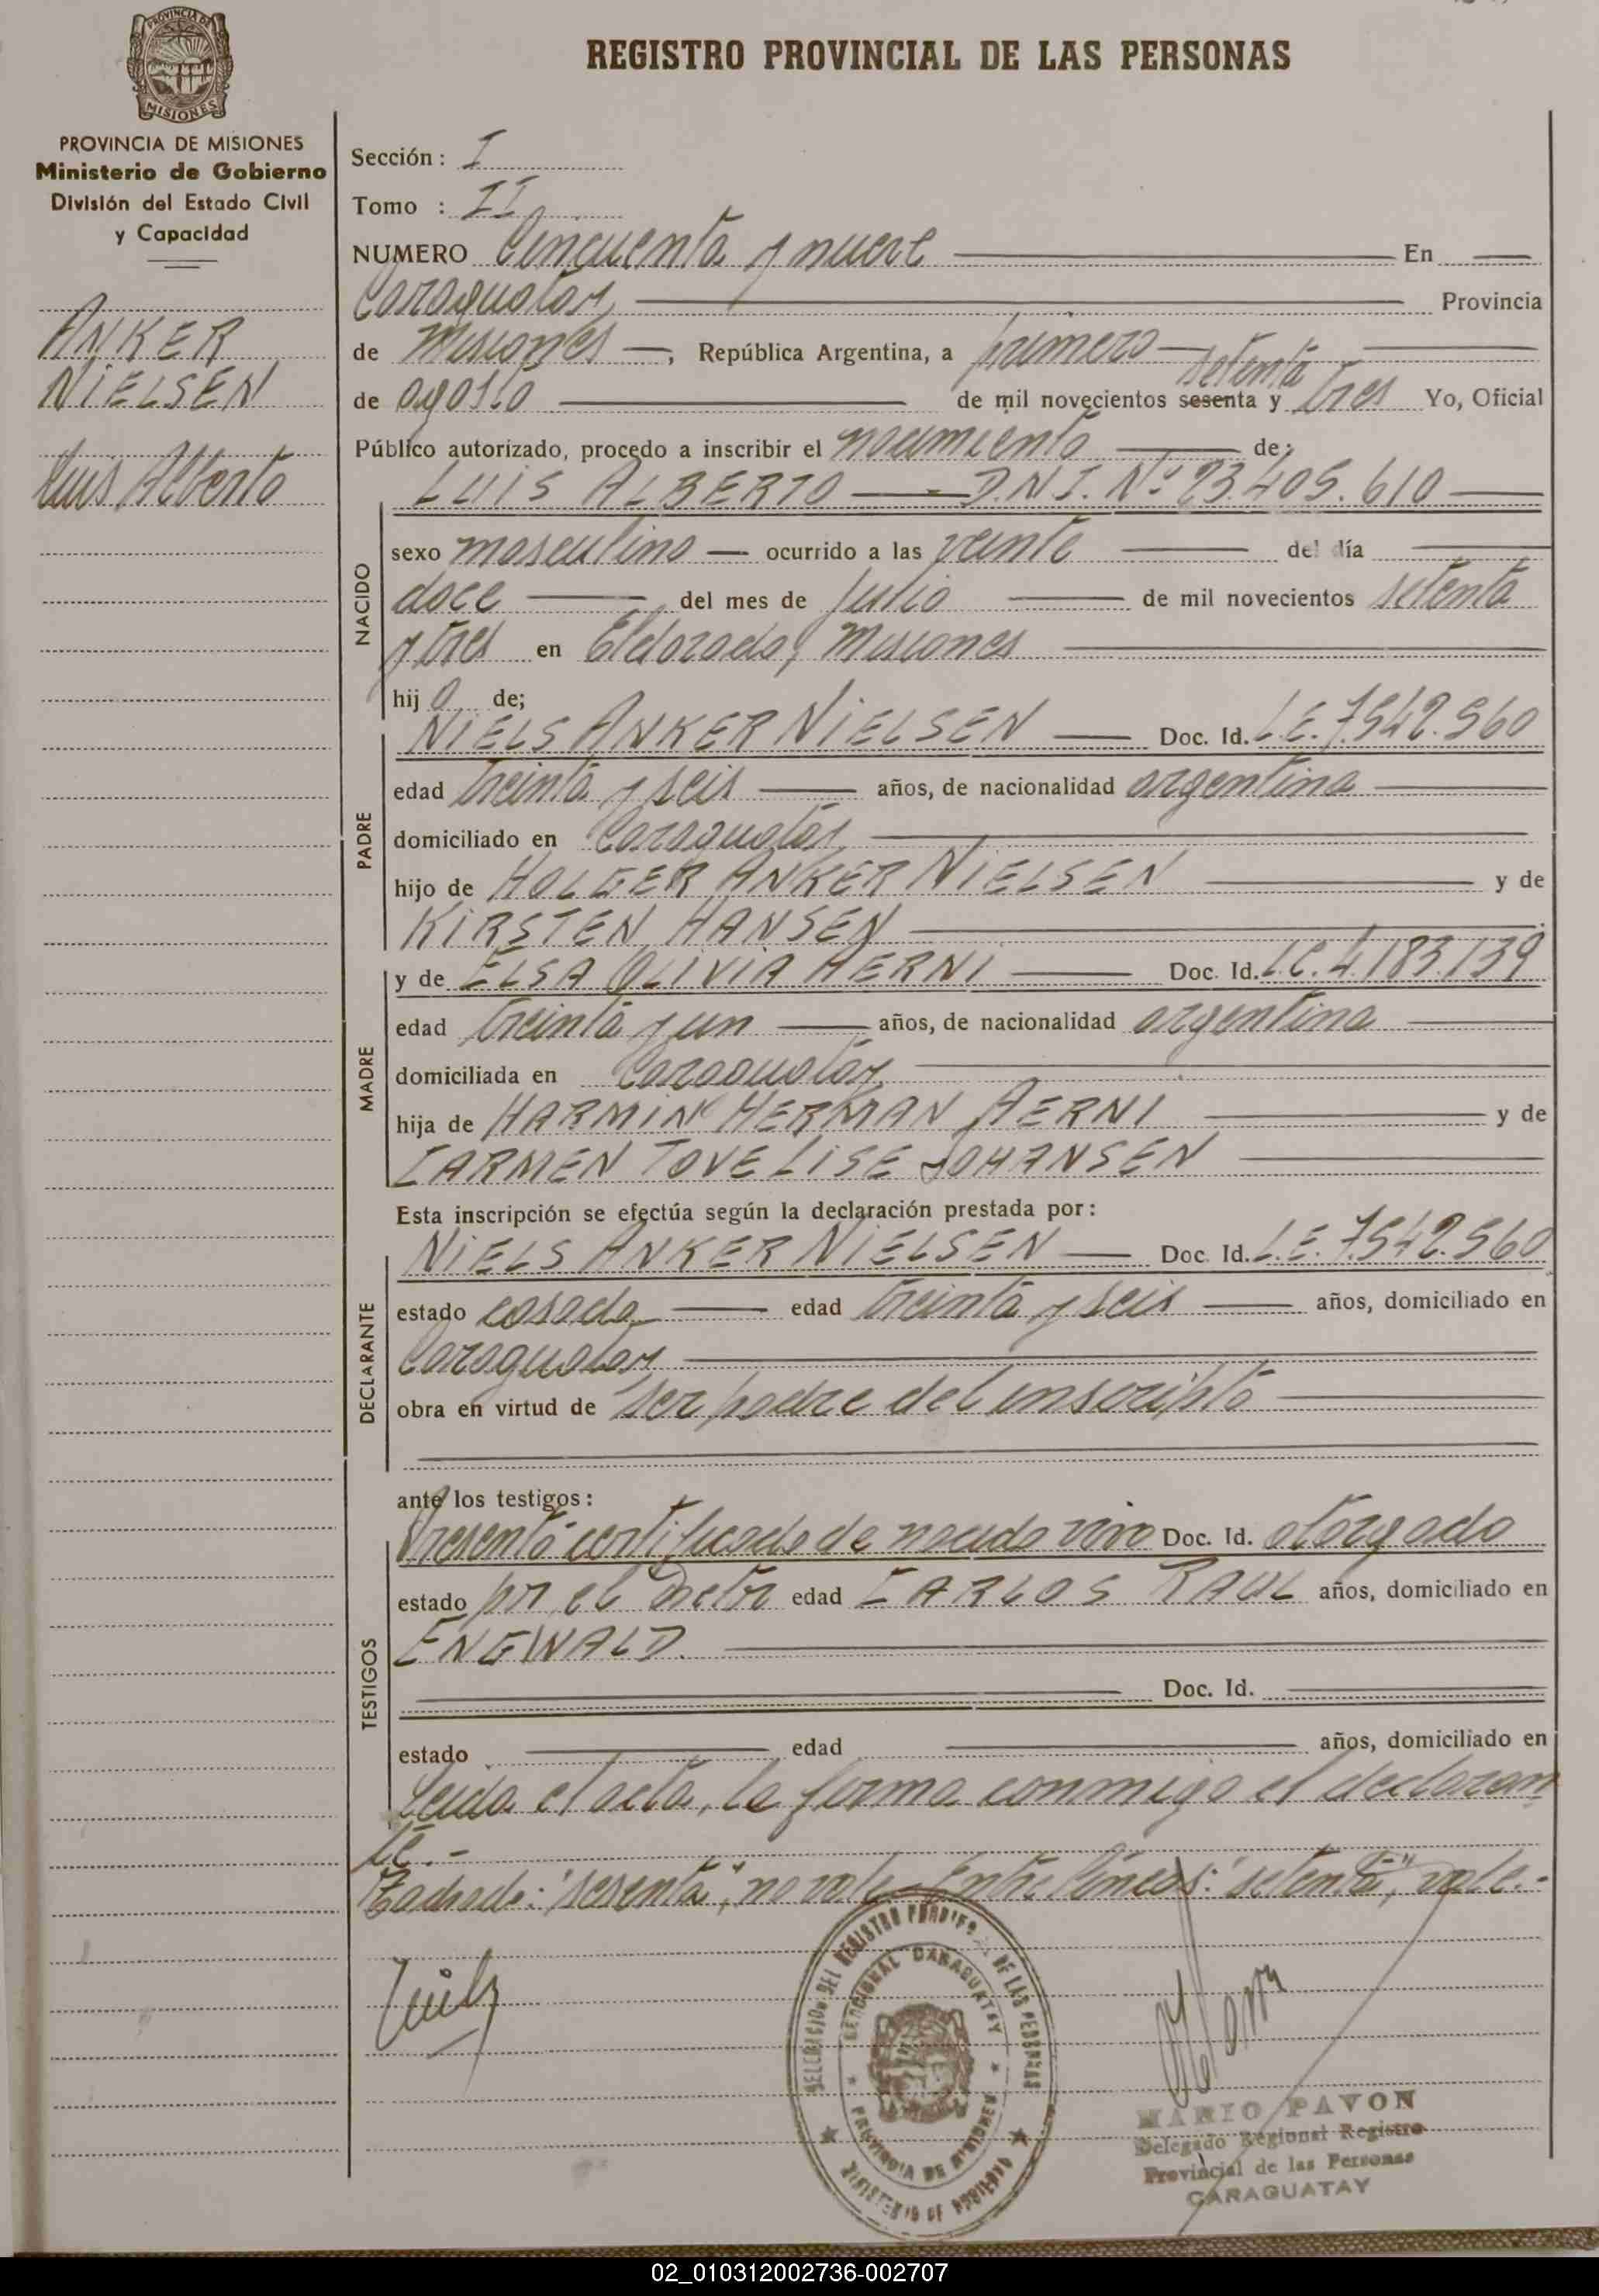 PROVINCIA DE
MISIONES
REGISTRO PROVINCIAL DE LAS PERSONAS
PROVINCIA DE MISIONES
Ministerio de Gobierno
División del Estado Civil
y Capacidad
ANKER
NIELSEN
Luis Alberto
Sección: I
Tomo : II
NUMERO Cincuenta y nueve En
Caraguatay, Provincia
de Misiones, República Argentina, a primero
setenta
de agosto de mil novecientos sesenta y tres Yo, Oficial
Público autorizado, procedo a inscribir el nacimiento de:
LUIS ALBERTO — D.N.I. Nº 23.405.610
NACIDO
sexo masculino ocurrido a las veinte del día
doce del mes de Julio de mil novecientos setenta
y tres en Eldorado, Misiones
hijo de;
PADRE
NIELS ANKER NIELSEN Doc. Id. L.E. 7.542.560
edad treinta y seis años, de nacionalidad argentina
domiciliado en Caraguatay,
hijo de HOLGER ANKER NIELSEN y de
KIRSTEN HANSEN
MADRE
y de ELSA OLIVIA AERNI Doc. Id. L.C. 4.183.139
edad treinta y un años, de nacionalidad argentina
domiciliada en Caraguatay,
hija de HARMIN HERMAN AERNI y de
CARMEN TOVE LISE JOHANSEN
Esta inscripción se efectúa según la declaración prestada por:
DECLARANTE
NIELS ANKER NIELSEN Doc. Id. L.E. 7.542.560
estado casado edad treinta y seis años, domiciliado en
Caraguatay
obra en virtud de ser padre del inscripto
ante los testigos:
TESTIGOS
Presentó certificado de nacido vivo Doc. Id. otorgado
estado por el Doctor edad CARLOS RAUL años, domiciliado en
ENGWALD.
Doc. Id.
estado edad años, domiciliado en
Leida el acta, la firma conmigo el declaran
te.-
Tachado: "sesenta", no vale. Entre líneas: "setenta", vale.-
SECCIONAL CARAGUATAY
PROVINCIA DE MISIONES
MARIO PAVON
Delegado Regional Registro
Provincial de las Personas
CARAGUATAY
02_010312002736-002707